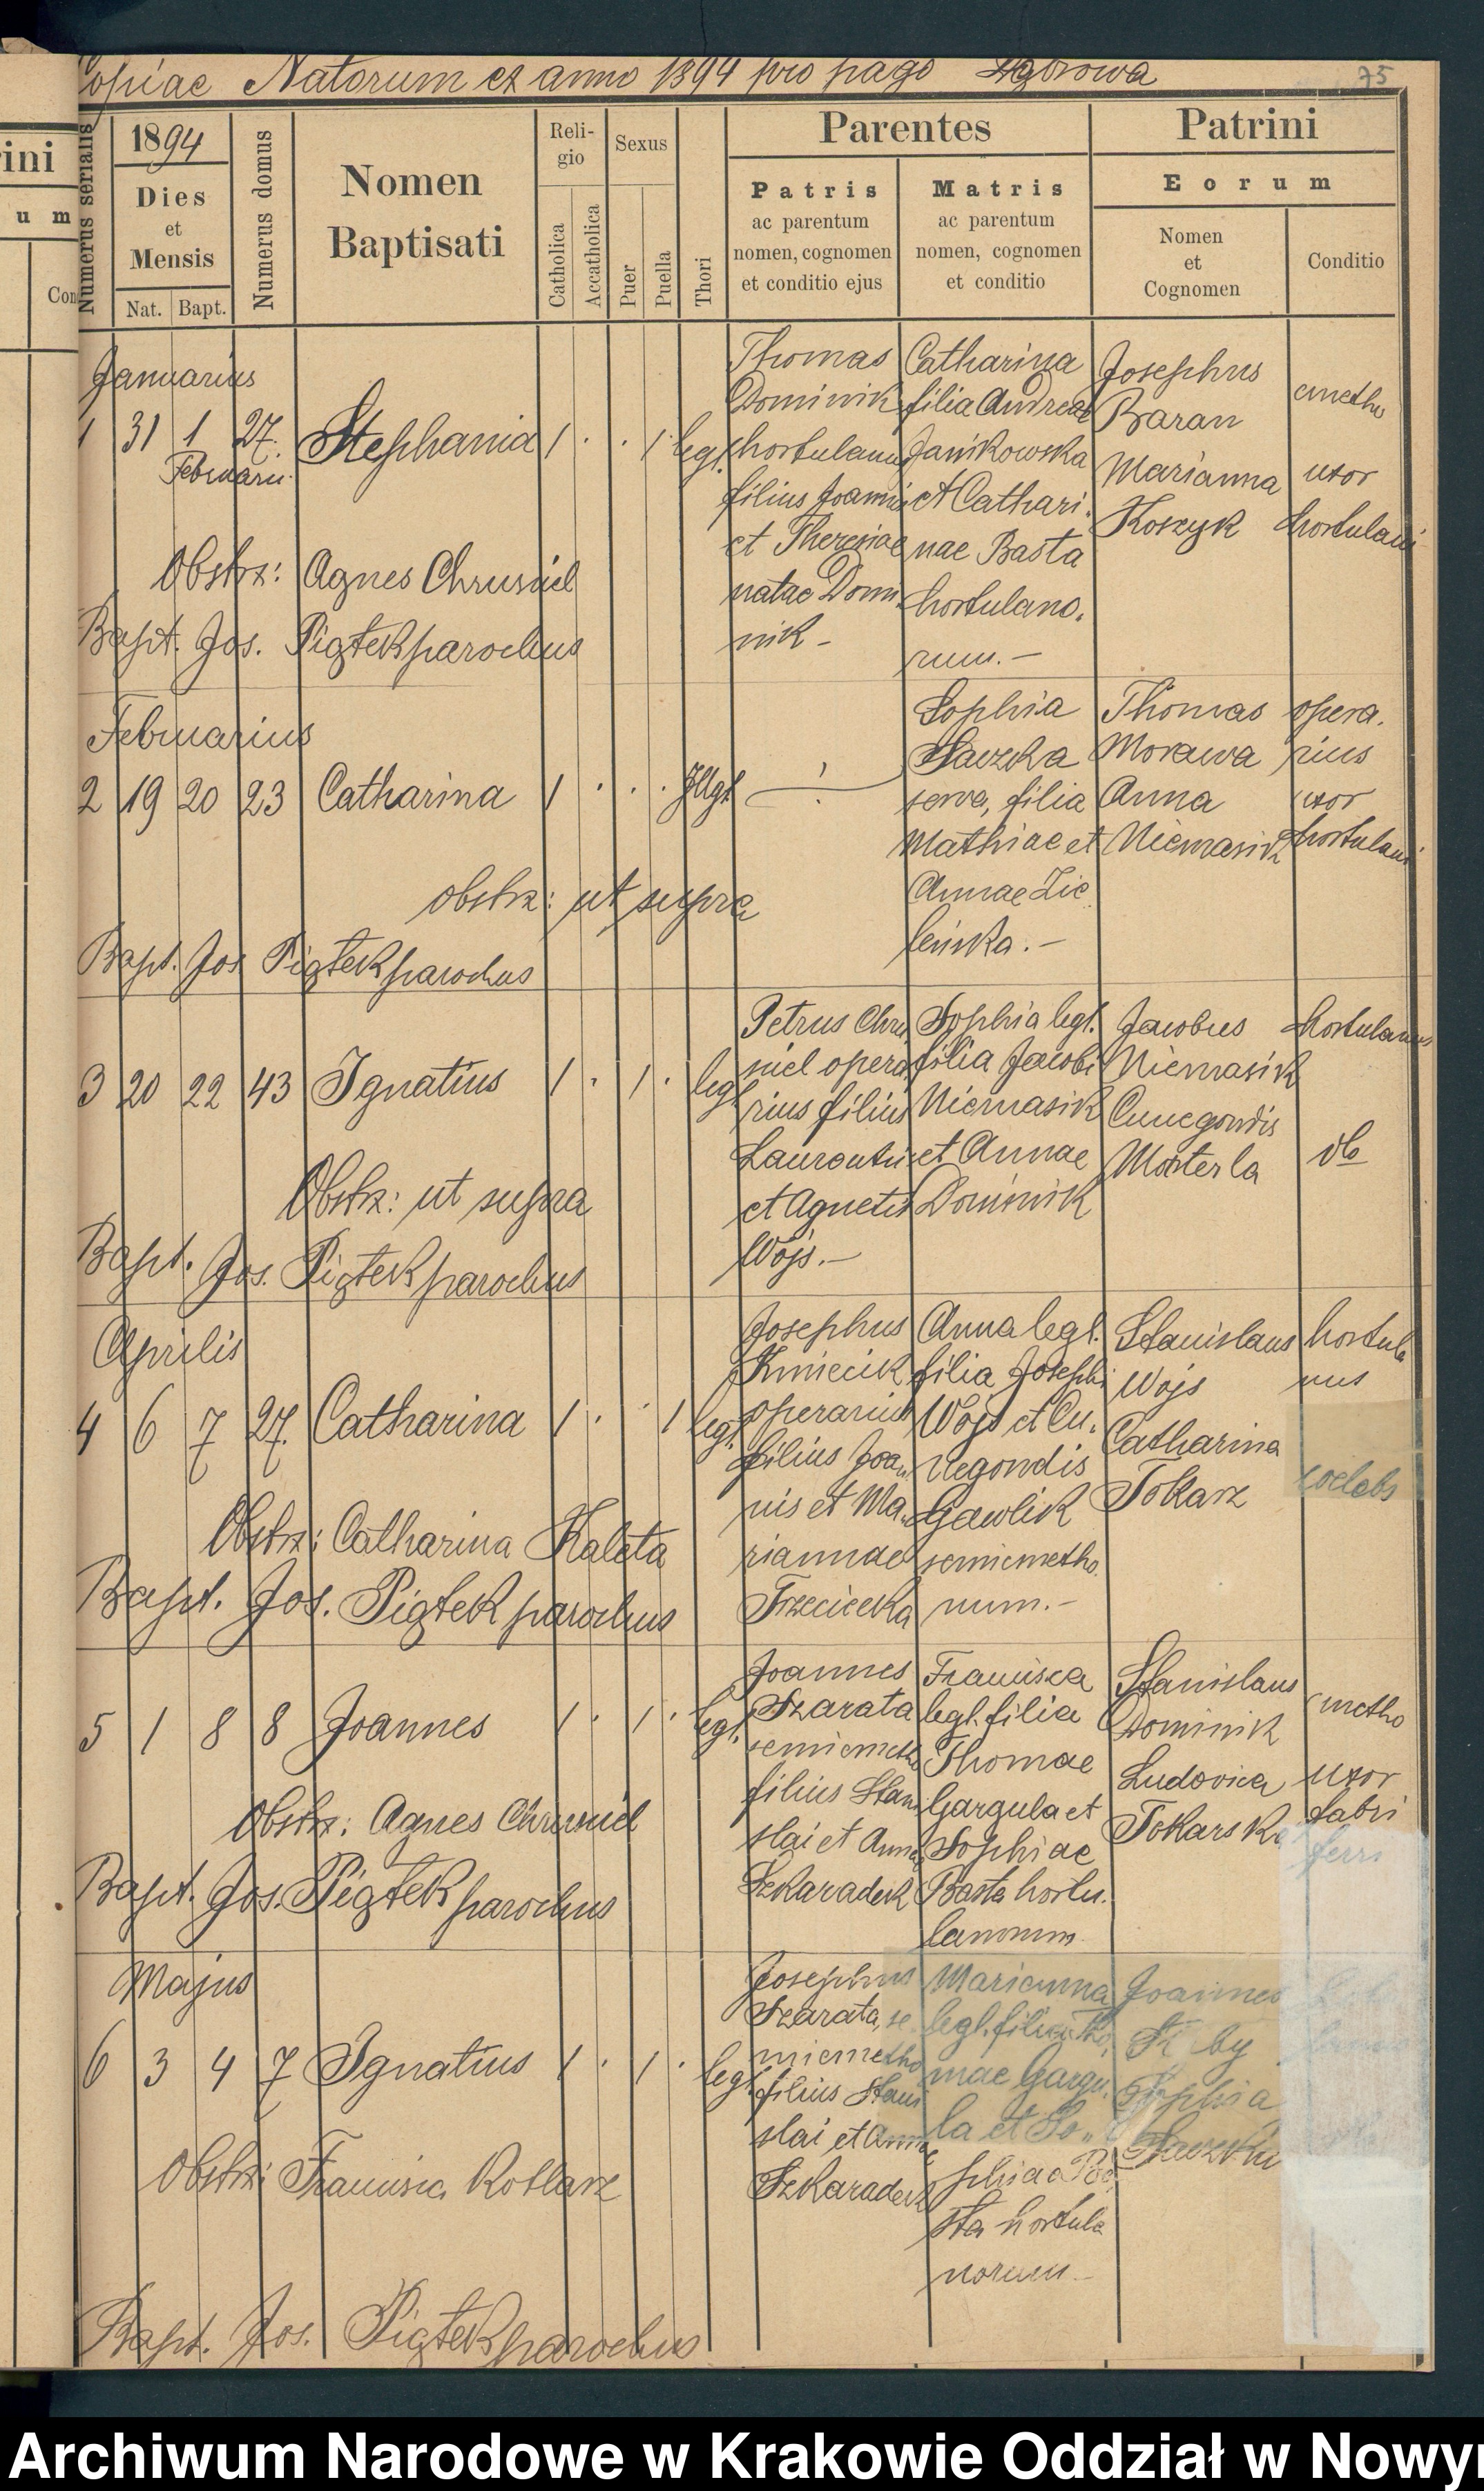 Copiae Natorum ex anno 1894 pro pago Dąbrowa
75
ini
u m
Con
Numerus serialis
1894
Dies
et
Mensis
Nat. Bapt.
Numerus domus
Nomen
Baptisati
Reli-
gio
Catholica
Accatholica
Sexus
Puer
Puella
Thori
Parentes
Patris
ac parentum
nomen, cognomen
et conditio ejus
Matris
ac parentum
nomen, cognomen
et conditio
Patrini
Eorum
Nomen
et
Cognomen
Conditio
Januarius
1 31 1 27. Stephania 1 . . 1 legt.
Februarii
Obstx: Agnes Chruściel
Bapt. Jos. Piątek parochus
Thomas
Dominik
hortulanus
filius Joannis
et Theresiae
natae Domi
nik –
Catharina
filia Andreae
Janikowska
et Cathari.
nae Basta
hortulano.
rum. –
Josephus
Baran
Marianna
Koszyk
cmetho
uxor
hortulani
Februarius
2 19 20 23 Catharina 1 . . . Illgt
obstx: ut supra
Bapt. Jos Piątek parochus
Sophia
serva, filia
Mathiae et
Annae Zie
leńska. –
Thomas
Morawa
Anna
Niemasik
opera.
rius
uxor
hortulani
3 20 22 43 Ignatius 1 . 1 . legt
Obstx: ut supra
Bapt. Jos. Piątek parochus
Petrus Chru
ściel opera
rius filius
Laurentii
et Agnetis
Wojs. –
Sophia legt.
filia Jacobi
Niemasik
et Annae
Dominik
Jacobus
Niemasik
Cunegondis
Mosterla
hortulanus
Aprilis
4 6 7 27. Catharina 1 . . 1 legt.
Obstx: Catharina Kaleta
Bapt. Jos. Piątek parochus
Josephus
Kmiecik
operarius
filius Joan
nis et Ma.
riannae
Trzeciecka
Anna legt.
filia Josephi
Wojs et Cu.
negondis
Gawlik
semicmetho.
num. –
Stanislaus
Wojs
Catharina
Tokarz
hortula
nus
coelebs
5 1 8 8 Joannes 1 . 1 . legt.
Obstx: Agnes Chruściel
Bapt. Jos. Piątek parochus
Joannes
Szarata
semicmetho
filius Stani
slai et Annae
Szkaradek
Francisca
legt. filia
Thomae
Gargula et
Sophiae
Basta hortu.
lanorum
Stanislaus
Dominik
Ludovica
Tokarska
cmetho
uxor
fabri
ferri
Majus
6 3 4 7 Ignatius 1 . 1 . legt
Obstx: Francisca Kotlarz
Bapt. Jos. Piątek parochus
Josephus
Szarata, se.
micmetho
filius Stani
slai et Annae
Szkaradek
Marianna
legt. filia Tho.
mae Gargu.
la et So„
phiae Ba
sta hortula
norum –
Joannes
Sophia
Archiwum Narodowe w Krakowie Oddział w Nowy